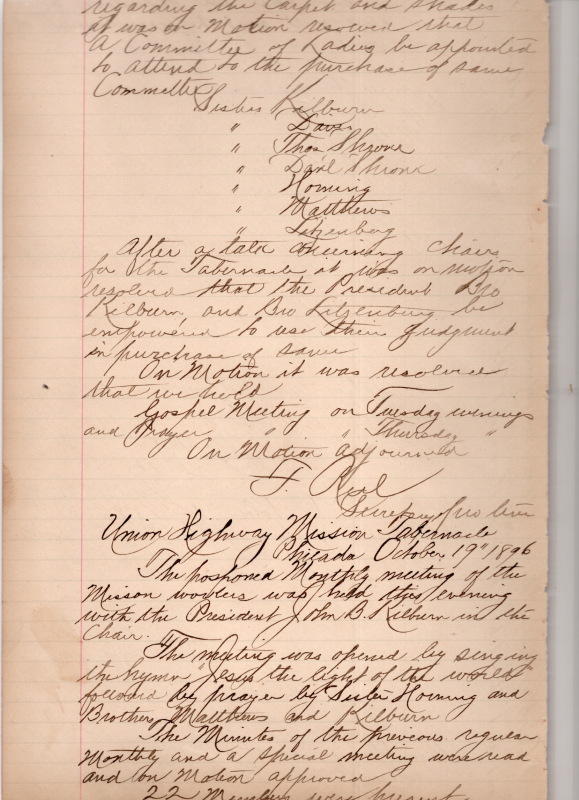 regarding the Carpet and Shades
it was on Motion resolved that
A Committee of Ladies be appointed
to attend to the purchase of same
Committee
Sisters Kilburn
" Davis
" Thos Shronk
" Danl Shronk
" Horning
" Matthews
" Litzenberg
After a talk concerning Chairs
for the Tabernacle it was on motion
resolved that the President Bro
Kilburn and Bro Litzenburg be
empowered to use their Judgment
in purchase of same
On Motion it was resolved
that we hold
Gospel Meeting on Tuesday evenings
and Prayer " " Thursday "
On Motion adjourned
Secretary pro tem
Union Highway Mission Tabernacle
Philada October 19" 1896
The posponed Monthly meeting of the
Misson workers was held this evening
with the President John B. Kilburn in the
Chair.
The meeting was opened by singing
the hymn "Jesus the light of the world
followed by prayer by Sister Horning and
Brothers Matthews and Kilburn
The Minutes of the previous regular
Monthly and a special meeting were read
and on Motion approved
22 Members were present